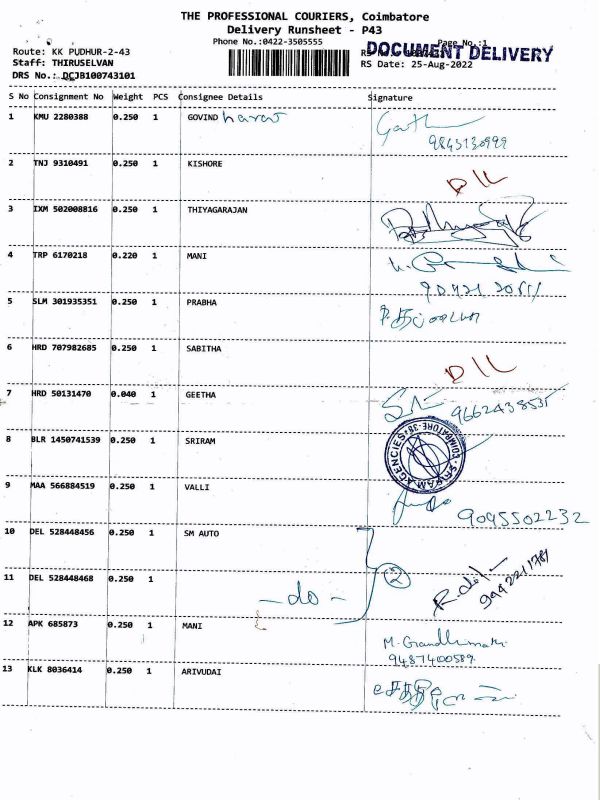 THE PROFESSIONAL COURIERS, Coimbatore
Delivery Runsheet - P43
Phone No.:0422-3505555
Page No.:1
DOCUMENT DELIVERY
Route: KK PUDHUR-2-43
Staff: THIRUSELVAN
RS Date: 25-Aug-2022
DRS No.: DCJB100743101
S No Consignment No Weight PCS Consignee Details Signature
1 KMU 2280388 0.250 1 GOVIND
9843130999
2 TNJ 9310491 0.250 1 KISHORE
D/L
3 IXM 502008816 0.250 1 THIYAGARAJAN
4 TRP 6170218 0.220 1 MANI
5 SLM 301935351 0.250 1 PRABHA
6 HRD 707982685 0.250 1 SABITHA
D/L
7 HRD 50131470 0.040 1 GEETHA
9662438535
8 BLR 1450741539 0.250 1 SRIRAM
SRIRAM AGENCIES COIMBATORE-38
9 MAA 566884519 0.250 1 VALLI
9095502232
10 DEL 528448456 0.250 1 SM AUTO
11 DEL 528448468 0.250 1 -do- 2
9942211781
12 APK 685873 0.250 1 MANI
M. Grandhimathi
9487400589
13 KLK 8036414 0.250 1 ARIVUDAI